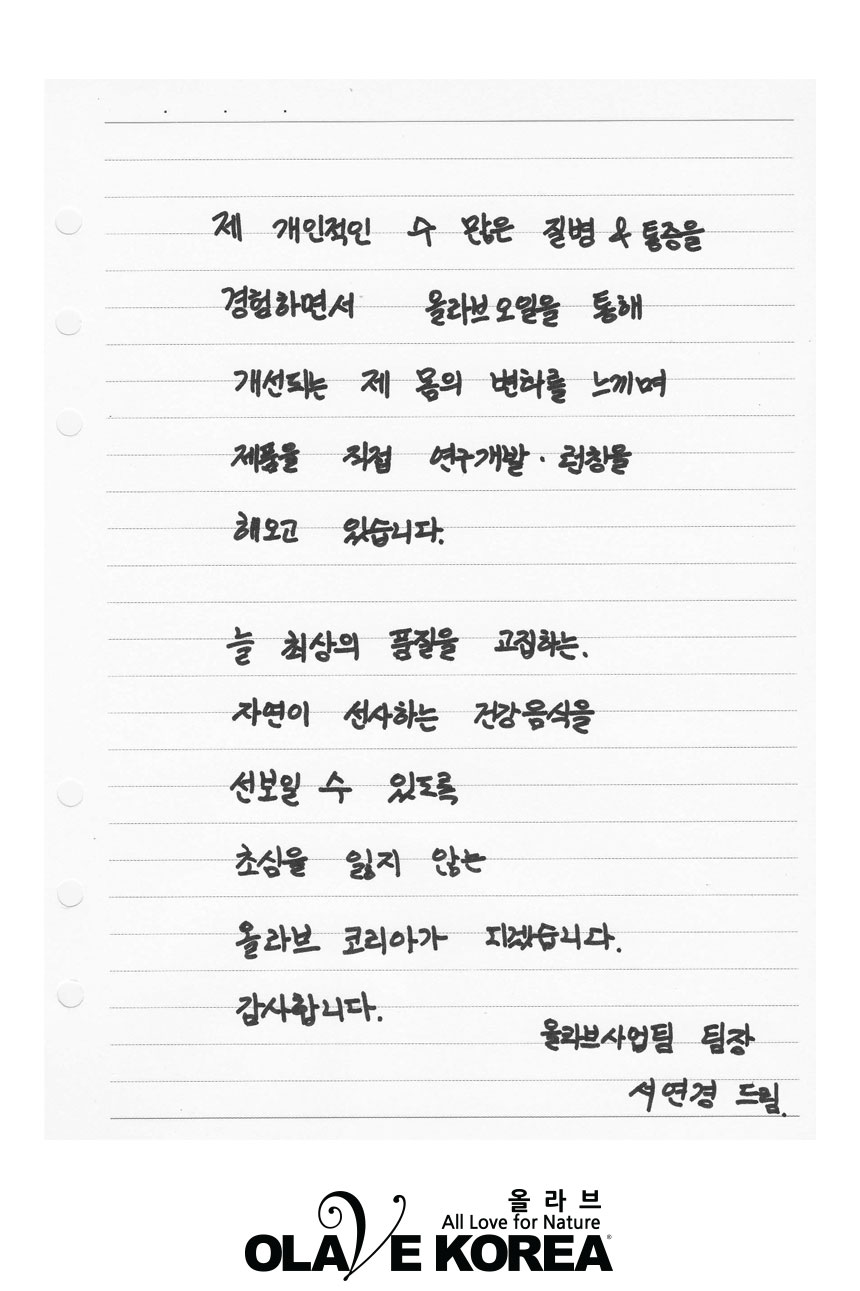 제 개인적인 수 많은 질병 & 통증을
경험하면서 올라브오일을 통해
개선되는 제 몸의 변화를 느끼며
제품을 직접 연구개발· 런칭을
해오고 있습니다.
늘 최상의 품질을 고집하는.
자연이 선사하는 건강음식을
선보일 수 있도록
초심을 잃지 않는
올라브 코리아가 되겠습니다.
감사합니다.
올라브사업팀 팀장
서연경 드림.
올라브
All Love for Nature
OLAVE KOREA®